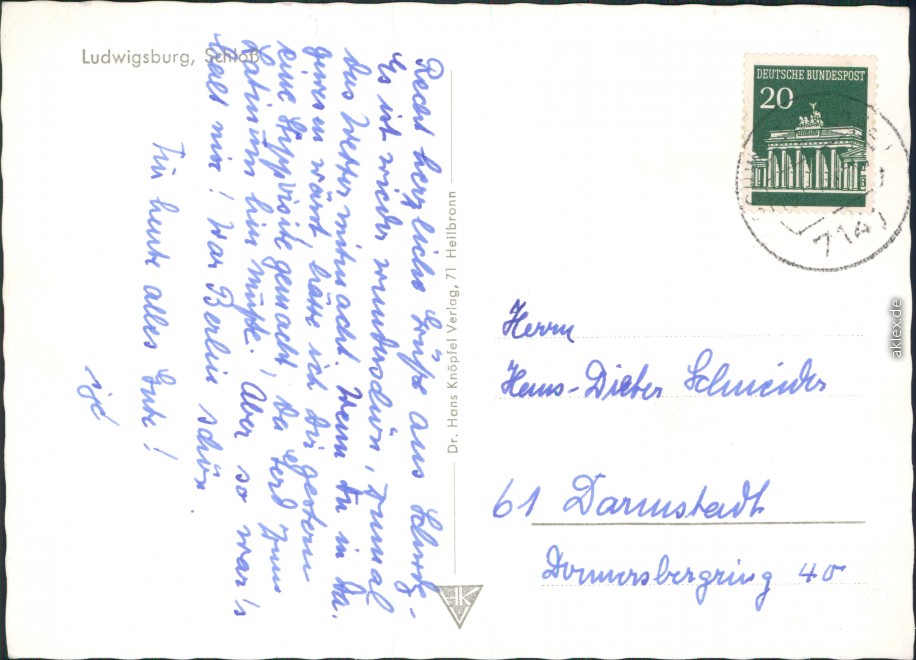 Ludwigsburg, Schloß
Recht herzliche Grüße aus Schwbg.
Es ist wieder wunderschön, zumal
das Wetter mitmacht. Wenn Du in Da.
gewesen wärst, hätte ich Dir gestern
eine Stippvisite gemacht, da Gerd zum
Latinum hin mußte. Aber so war's
halt nix! War Berlin schön.
Für heute alles Gute!
Dr. Hans Knöpfel Verlag, 71 Heilbronn
HK
DEUTSCHE BUNDESPOST
20
7141
Herrn
Hans-Dieter Schneider
61 Darmstadt
Donnersbergring 40
aklex.de